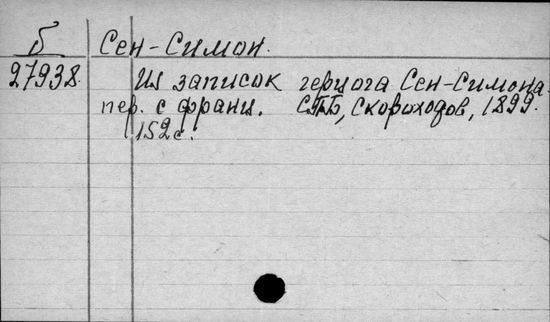 Б Сен-Симон.
27938. Из записок герцога Сен-Симона.
пер. с франц. СПБ, Скороходов, 1899.
152 с.